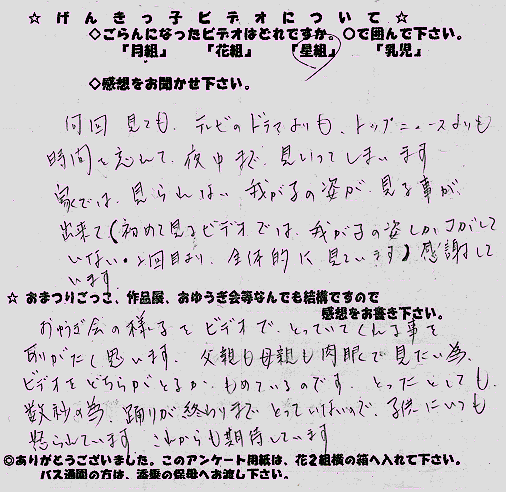 ☆ げんきっ子ビデオについて ☆
◇ごらんになったビデオはどれですか。○で囲んで下さい。
『月組』 『花組』 『星組』 『乳児』
◇感想をお聞かせ下さい。
何回見ても、テレビのドラマよりも、トップニュースよりも
時間を忘れて、夜中まで、見いってしまいます
家では、見られない我が子の姿が、見る事が、
出来て(初めて見るビデオでは、我が子の姿しかさがして
いない。2回目より、全体的に見ています)感謝して
います。
☆ おまつりごっこ、作品展、おゆうぎ会等なんでも結構ですので
感想をお書き下さい。
おゆうぎ会の様子をビデオで、とっていてくれる事を
有りがたく思います。父親も母親も肉眼で見たい為、
ビデオをどちらがとるか、もめているのです。とったとしても、
数秒の為、踊りが終わりまでとっていないので、子供にいつも
怒られています。これからも期待しています
◎ありがとうございました。このアンケート用紙は、花2組横の箱へ入れて下さい。
バス通園の方は、添乗の保母へお渡し下さい。